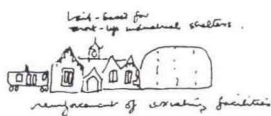 -based for
-up industrial shelters.
reinforcement of existing facilities